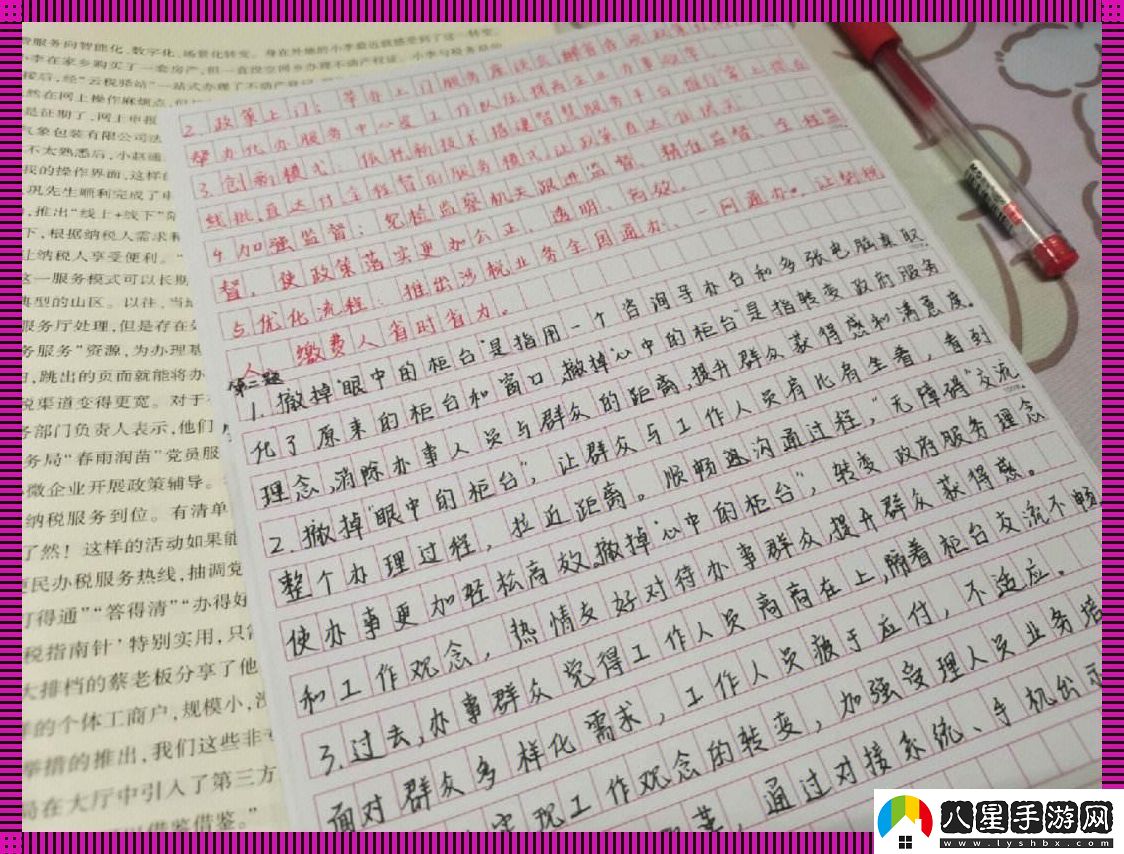 服务向智能化、数字化、场景化转变。身在外地的小李最近就感受到了这一转变。
小李在家乡购买了一套房产，但一直没空回乡办理不动产权证。小李与税务局的
接后，经“云税驿站”一站式办理了不动产
然在网上操作麻烦点，但
是征期了，网上申报
气象包装有限公司法
不太熟悉后，小赵通
我的操作界面，这样
巩先生顺利完成了申
，推出“线上+线下”
下，根据纳税人需求
上纳税人享受便利。”
这一服务模式可以长期
典型的山区。以往，当
服务厅处理，但是存在
务服务”资源，为办理
，跳出的页面就能将办
税渠道变得更宽。对于
务部门负责人表示，他们
务局“春雨润苗”党员服
小微企业开展政策辅导。
纳税服务到位。有清单
了然！这样的活动如果能
便民办税服务热线，抽调党
打得通”“答得清”“办得好
税指南针’特别实用，只
大排档的蔡老板分享了他
样的个体工商户，规模小，
举措的推出，我们这些非
局在大厅中引入了第三方
以借鉴借鉴。”
2.政策上门：举办上门服务座谈会，解
帮办代办服务中心
3.创新模式：依托新技术搭建智慧服务平台，推行掌上
线批、直达付全程督的服务模式，让政策直达
4.加强监督：纪检监察机关跟进监督、精准监督、全程监
督，使政策落实更加公正、透明、高效。
5.优化流程：推出涉税业务全国通办、一网通办。让纳税
人、缴费人省时省力。
第二题
1.撤掉“眼中的柜台”是指用一个咨询导办台和多张电脑桌取
代了原来的柜台和窗口，撤掉“心中的柜台”是指转变政府服务
理念，消除办事人员与群众的距离，提升群众获得感和满意度。
2.撤掉“眼中的柜台”，让群众与工作人员肩比肩坐着，看到
整个办理过程，拉近距离。顺畅沟通过程，“无障碍”交流
使办事更加轻松高效。撤掉“心中的柜台”，转变政府服务理念
和工作观念，热情友好对待办事群众，提升群众获得感。
3.过去，办事群众觉得工作人员高高在上，隔着柜台交流不畅
面对群众多样化需求，工作人员疲于应付，不适应。
实现工作观念的转变，加强受理人员业务培
通过对接系统、手机出示
八星手游网
www.lyshbx.com